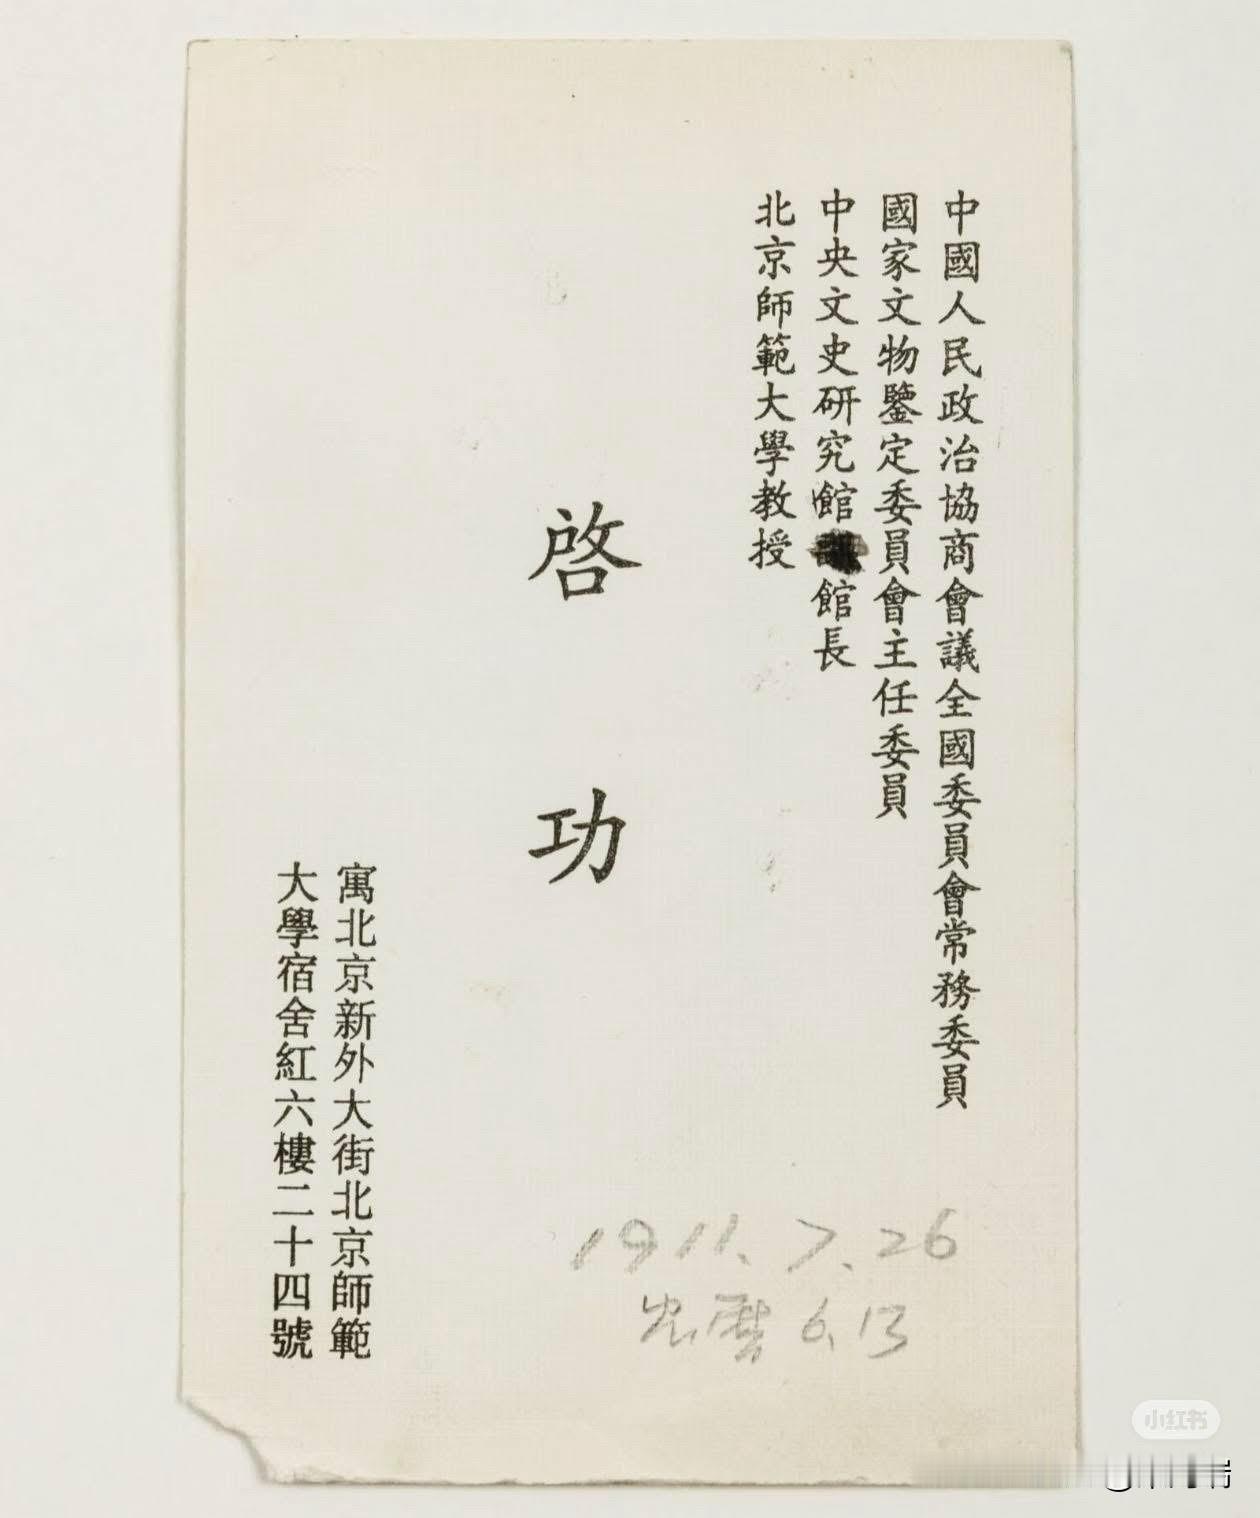 中國人民政治協商會議全國委員會常務委員
國家文物鑒定委員會主任委員
中央文史研究館館長
北京師範大學教授
啓功
寓北京新外大街北京師範
大學宿舍紅六樓二十四號
1911.7.26
農曆6.13
小红书